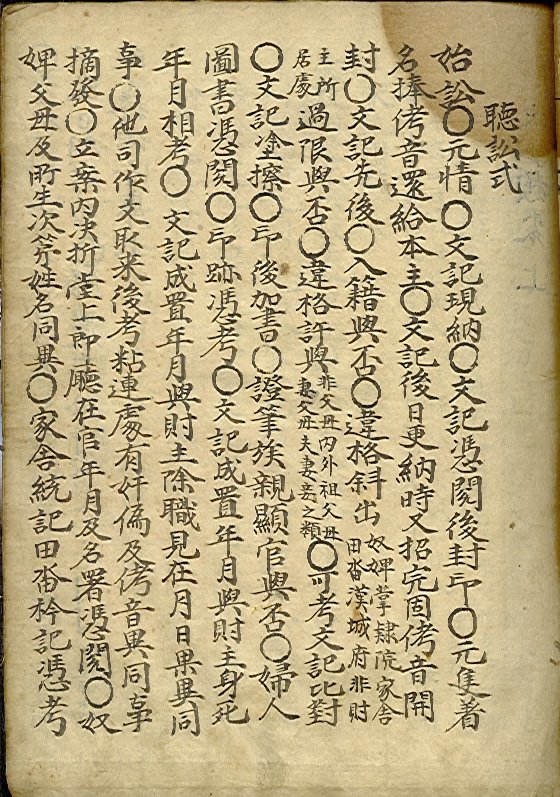 聽訟式
始訟〇元情〇文記現納〇文記憑閱後封印〇元隻着
名捧侤音還給本主〇文記後日更納時又招完固侤音開
封〇文記先後〇入籍與否〇違格斜出奴婢掌隷院家舍田畓漢城府非財
主所居處過限與否〇違格許與非父母內外祖父母妻父母夫妻妾之類〇可考文記比對
〇文記塗擦〇印後加書〇證筆族親顯官與否〇婦人
圖書憑閱〇印跡憑考〇文記成置年月與財主身死
年月相考〇文記成置年月與財主除職見在月日果異同
事〇他司作文取來後考粘連處有奸偽及侤音異同事
摘發〇立案內決折堂上郞廳在官年月及名署憑閱〇奴
婢父母及所生次第姓名同異〇家舍統記田畓衿記憑考